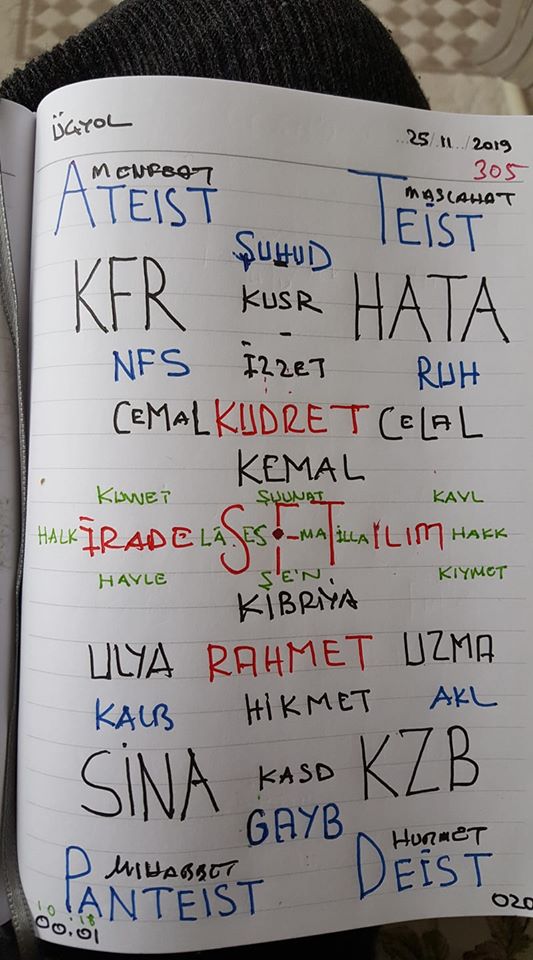 ÜÇYOL 25/11/2019
305
MENFEAT MASLAHAT
ATEIST TEİST
ŞUHUD
KFR KUSR HATA
NFS İZZET RUH
CEMAL KUDRET CELAL
KEMAL
KUVVET ŞUUNAT KAVL
HALK İRADE LÂ ES MA İLLA İLIM HAKK
HAVLE ŞE'N KIYMET
KİBRİYA
ULYA RAHMET UZMA
KALB HİKMET AKL
SİNA KASD KZB
GAYB
MUHABBET HURMET
PANTEIST DEİST
10:18 020
00.01